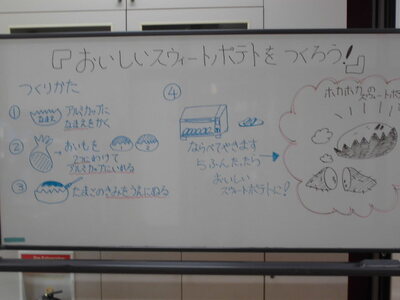 『おいしいスウィートポテトをつくろう!』
つくりかた
① アルミカップに
なまえをかく
② おいもを
2つにわけて
アルミカップにいれる
③ たまごのきみをうえにぬる
④
ならべてやきます
5ふんたったら
おいしい
スウィートポテトに!
ホカホカの
スウィートポ